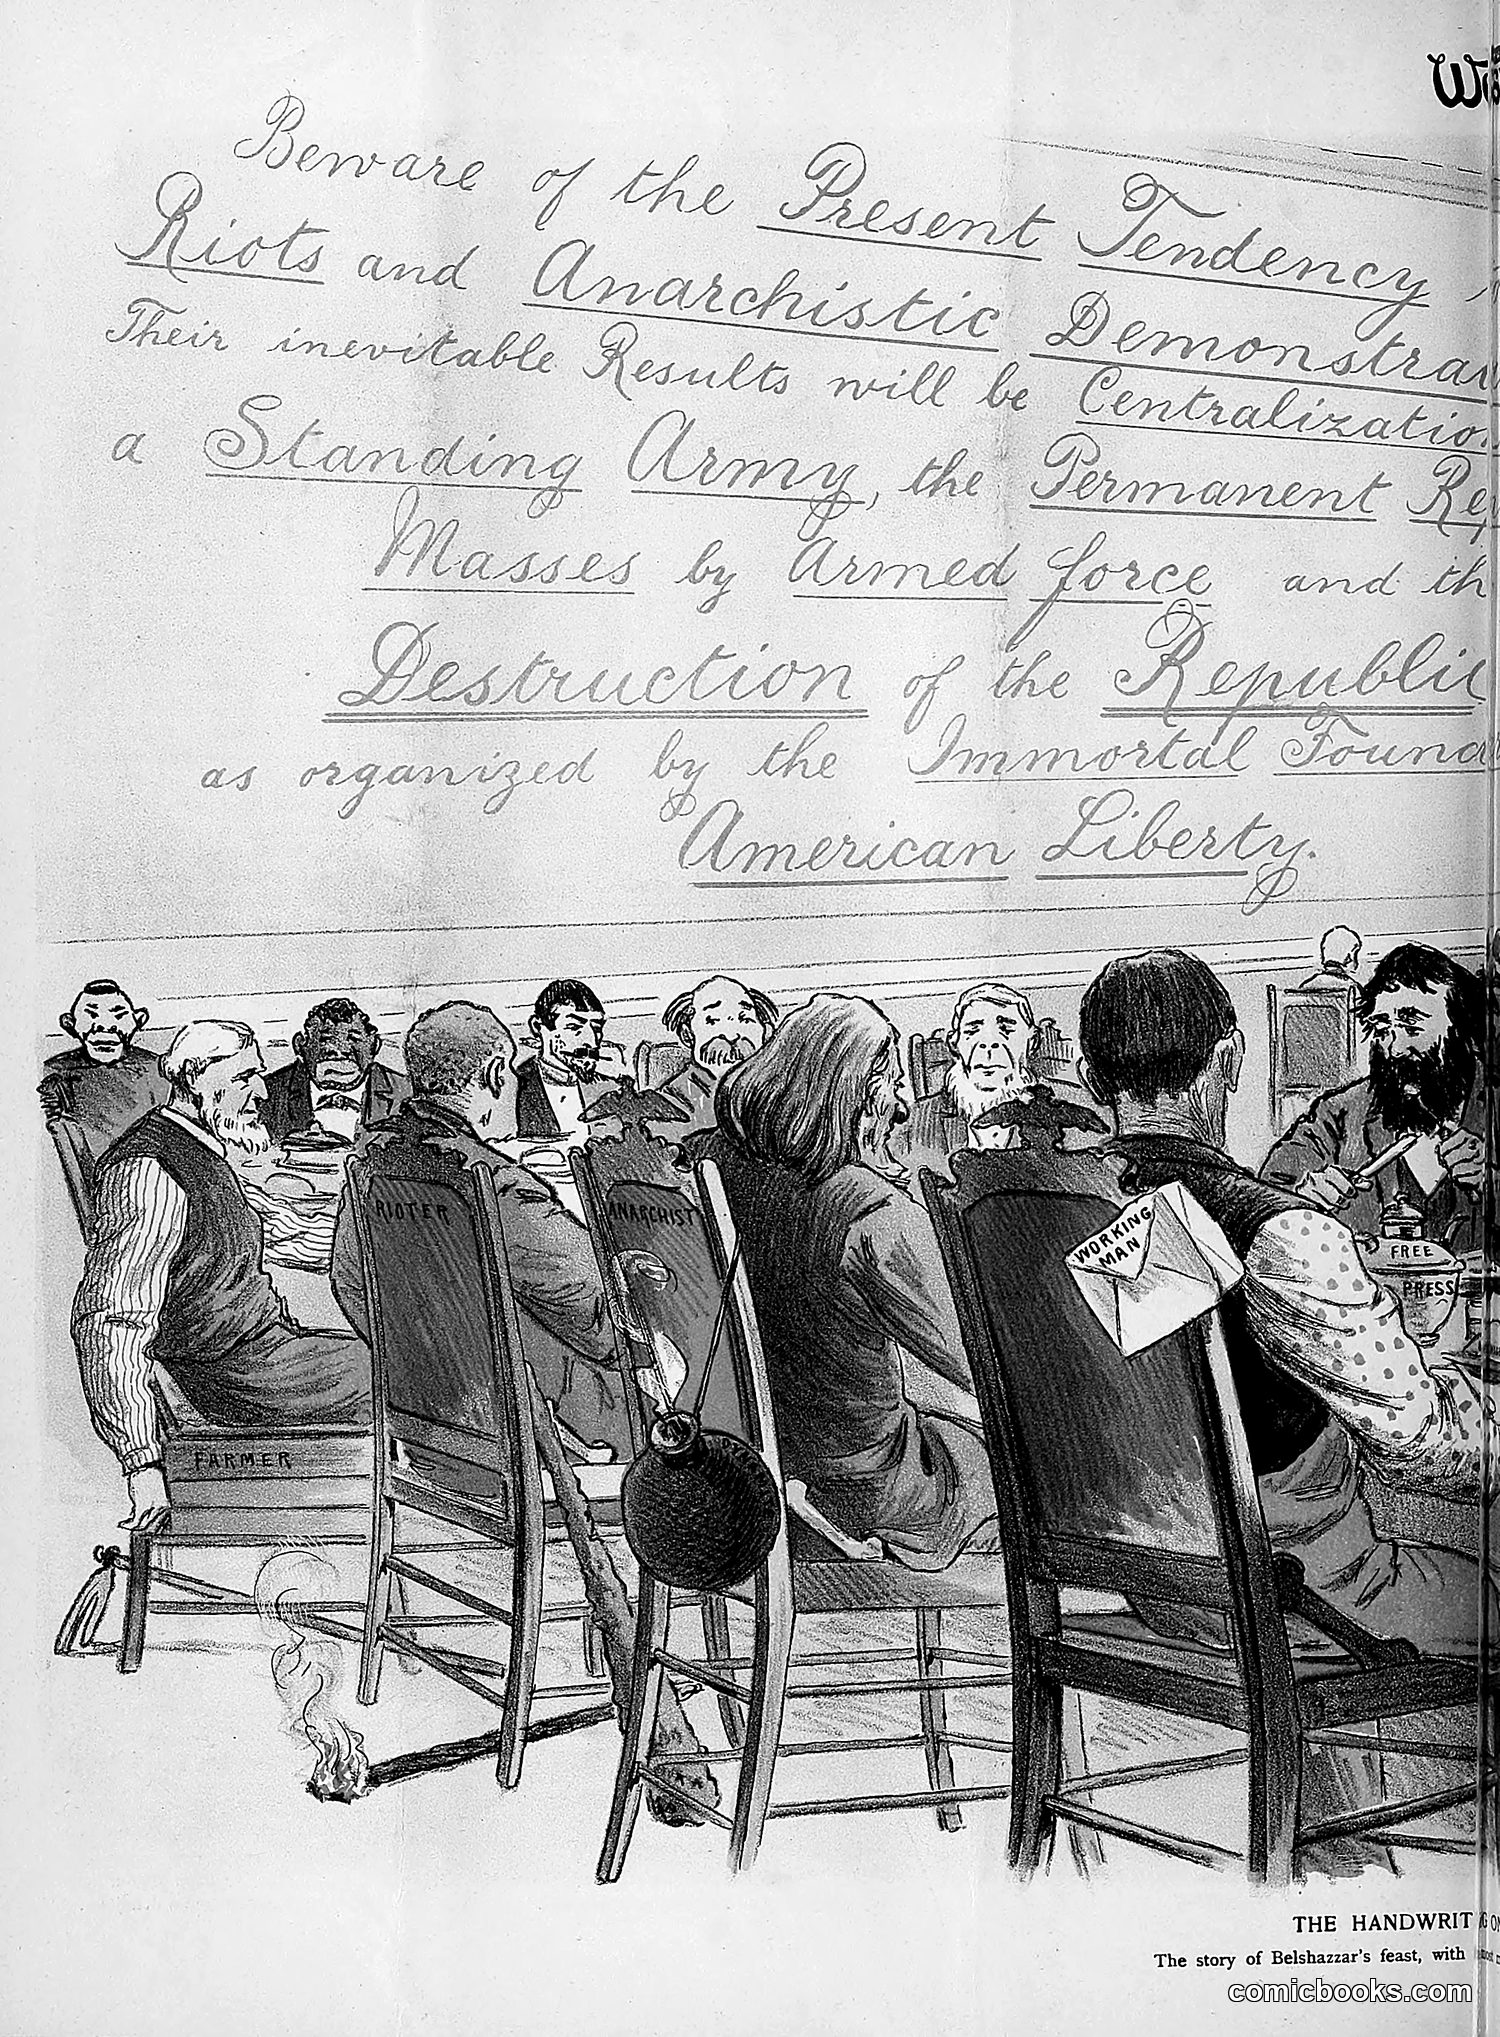 Beware of the Present Tendency
Riots and Anarchistic Demonstra
Their inevitable Results will be Centralization
a Standing Army, the Permanent Re
Masses by Armed force and th
Destruction of the Republic
as organized by the Immortal Found
American Liberty.
RIOTER
ANARCHIST
WORKING
MAN
FREE
PRESS
FARMER
DY
THE HANDWRIT G ON
The story of Belshazzar's feast, with
comicbooks.com